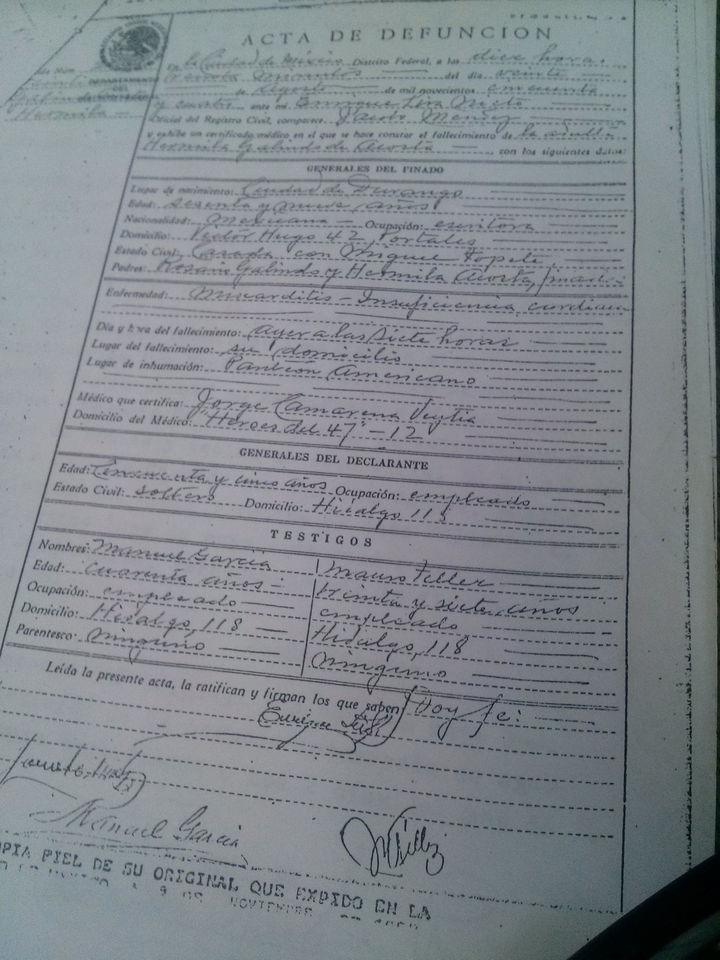 ACTA DE DEFUNCION
En la Ciudad de México Distrito Federal, a las diez horas
treinta minutos del día veinte
de Agosto de mil novecientos cincuenta
y cuatro ante mí Enrique Lira Nieto
Oficial del Registro Civil, comparece Jacobo Mendez
y exhibe un certificado médico en el que se hace constar el fallecimiento de la adulta
Hermila Galindo de Acosta, con los siguientes datos:
DEPARTAMENTO
DEL
Hermila
GENERALES DEL FINADO
Lugar de nacimiento: Ciudad de Durango
Edad: Sesenta y nueve años
Nacionalidad: Mexicana Ocupación: escritora
Domicilio: Victor Hugo 42 Portales
Estado Civil: Casada con Miguel Topete
Padres: Rosario Galindo y Hermila Acosta,
Enfermedad: Miocarditis - Insuficiencia cardiaca
Día y hora del fallecimiento: ayer a las siete horas
Lugar del fallecimiento: su domicilio
Lugar de inhumación: Panteon Americano
Médico que certifica: Jorge Camarena Veytia
Domicilio del Médico: "Heroes del 47" - 12
GENERALES DEL DECLARANTE
Edad: Cincuenta y cinco años Ocupación: empleado
Estado Civil: soltero Domicilio: Hidalgo 118
TESTIGOS
Nombres: Manuel Garcia Mauro Teller
Edad: cuarenta años treinta y siete años
Ocupación: empleado empleado
Domicilio: Hidalgo, 118 Hidalgo, 118
Parentesco: ninguno ninguno
Leída la presente acta, la ratifican y firman los que saben Doy fe:
Manuel Garcia
COPIA FIEL DE SU ORIGINAL QUE EXPIDO EN LA
9 DE NOVIEMBRE DE